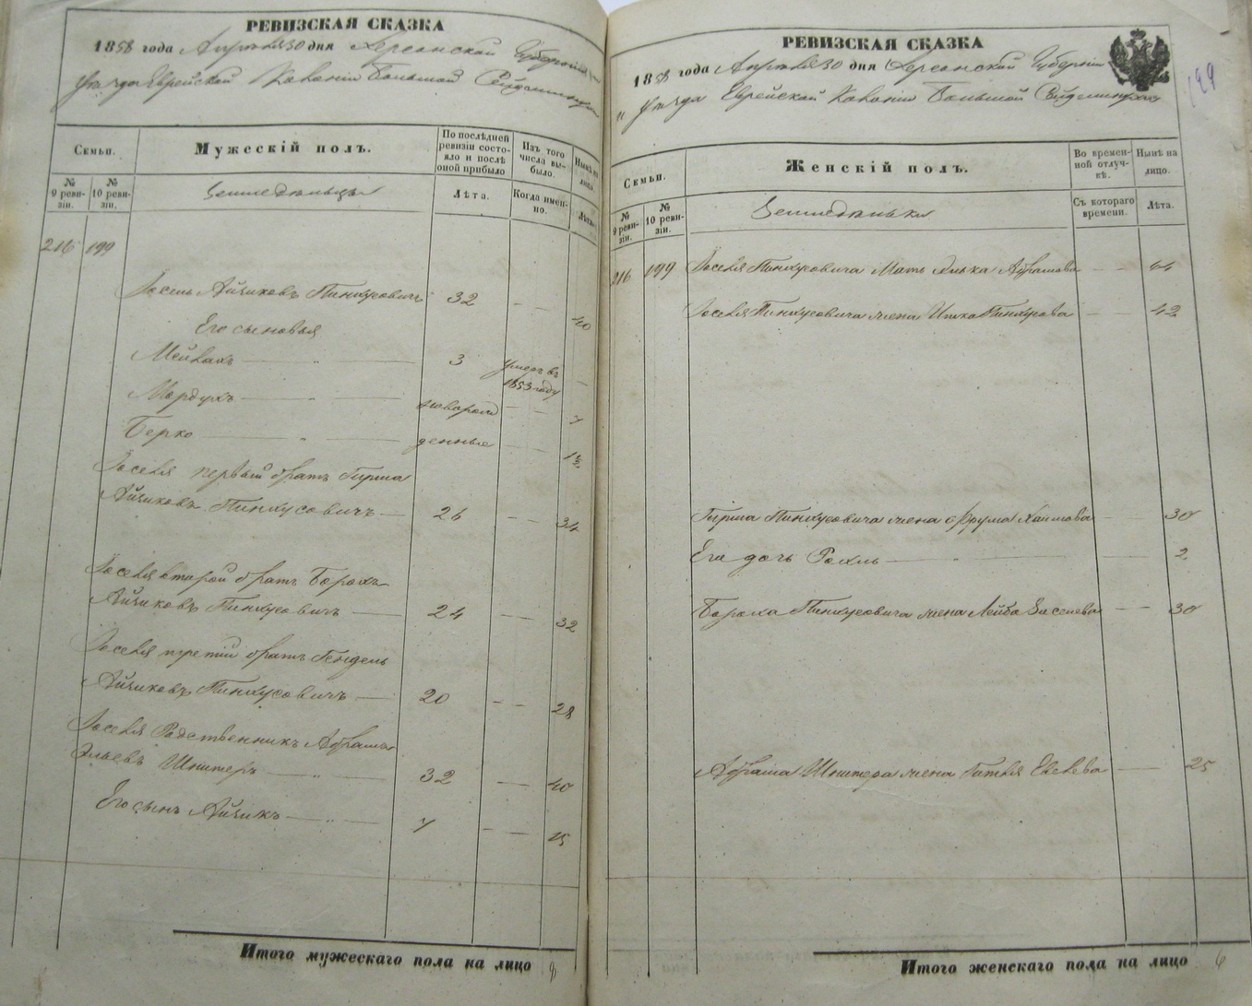 РЕВИЗСКАЯ СКАЗКА
1858 года Апреля 30 дня Херсонской Губернии
Уезда Еврейской Колонии Большой
Семьи.
Мужескій полъ.
По последней ревизіи состояло и послѣ оной прибыло
Изъ того числа выбыло.
Нынѣ на лицо.
№ 9 ревизіи.
№ 10 ревизіи.
Земледельцы
Лѣта.
Когда именно.
Лѣта.
216 199
Іосель Айзиковъ Пинкусовичъ 32 — — 40
Его сыновья
3 умеръ въ 1853 году —
Мордухъ — " — — — 7
Берко — " — — — 13
Іоселя первый братъ Гирша
Айзиковъ Пинкусовичъ — 26 — — 34
Іоселя второй братъ Борохъ
Айзиковъ Пинкусовичъ — 24 — — 32
Іоселя третій братъ Гендель
Айзиковъ Пинкусовичъ — 20 — — 28
Іоселя Родственникъ Абрамъ
Эльевъ Шнитеръ — " — 32 — — 40
Его сынъ Айзикъ — " — 7 — — 15
Итого мужескаго пола на лицо 8
РЕВИЗСКАЯ СКАЗКА
1858 года Апреля 30 дня Херсонской Губерніи
199
Уезда Еврейской Колоніи Большой
Семьи.
Женскій полъ.
Во временной отлучкѣ.
Нынѣ на лицо.
№ 9 ревизіи.
№ 10 ревизіи.
Съ котораго времени.
Лѣта.
216 199 Іоселя Пинкусовича Мать Абрамова — — 64
Іоселя Пинкусовича жена Итка Пинкусова — — 42
Гирша Пинкусовича жена Фрума Хаимова — — 30
Его дочь Рохль — — 2
Бороха Пинкусовича жена Лейба — — 30
Абрама Шнитера жена — — 25
Итого женскаго пола на лицо 6